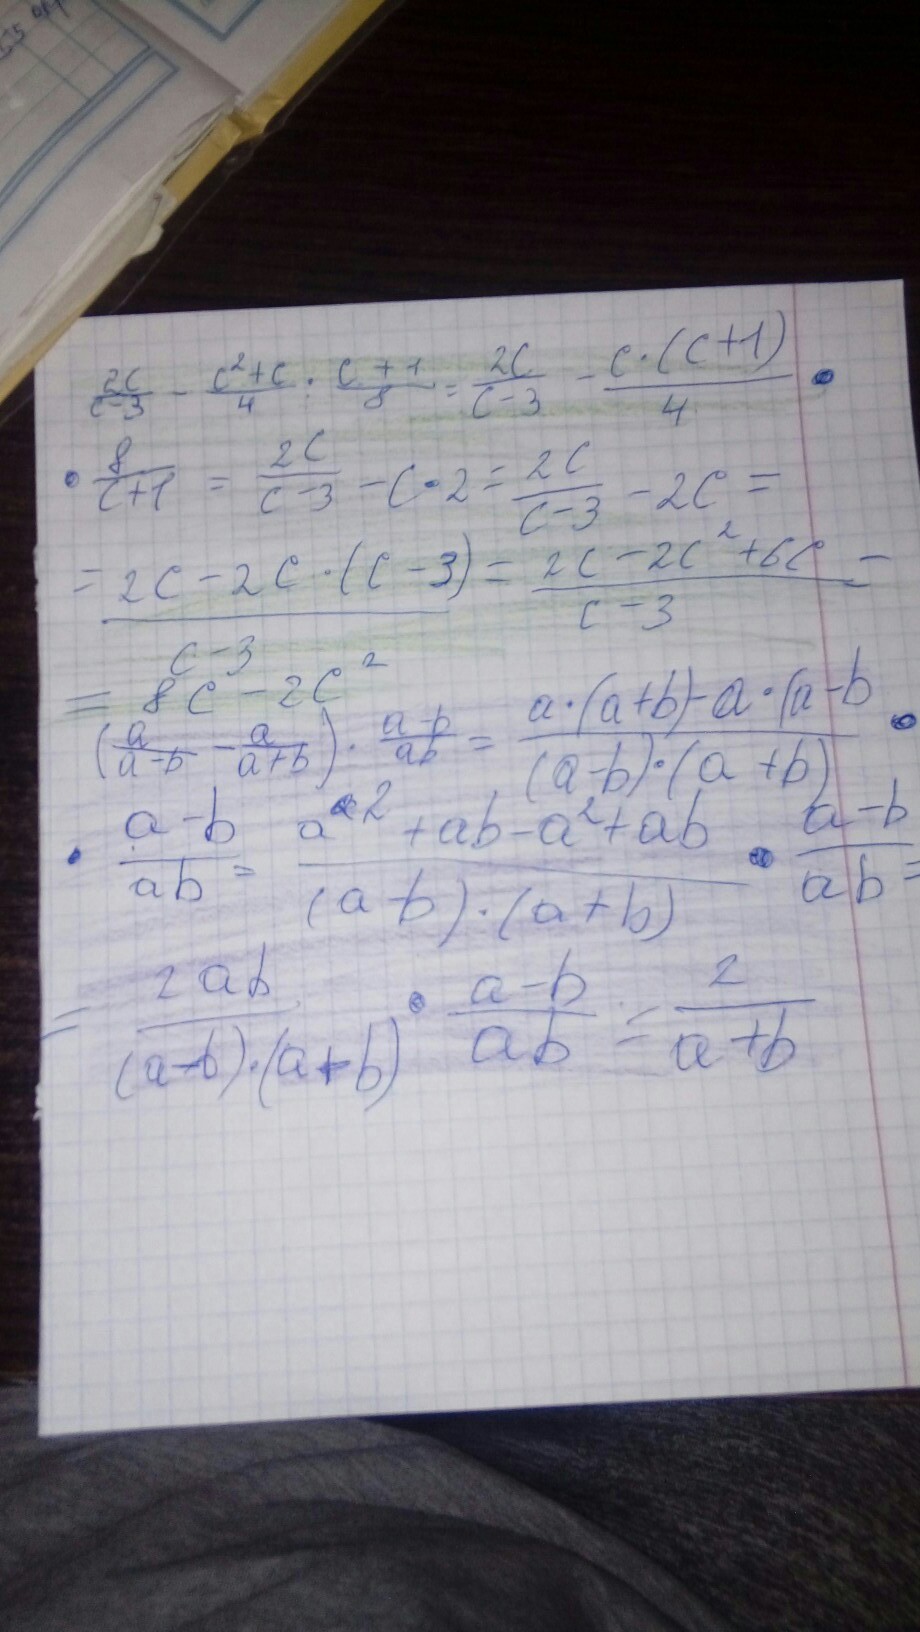 2c/c-3 - c²+c/4 : c+1/8 = 2c/c-3 - c·(c+1)/4 ·
· 8/c+1 = 2c/c-3 - c·2 = 2c/c-3 - 2c =
= 2c-2c·(c-3)/c-3 = 2c-2c²+6c/c-3 =
= 8c-2c²
(a/a-b - a/a+b) · a-b/ab = a·(a+b)-a·(a-b/(a-b)·(a+b) ·
· a-b/ab = a²+ab-a²+ab/(a-b)·(a+b) · a-b/ab =
= 2ab/(a-b)·(a+b) · a-b/ab = 2/a+b